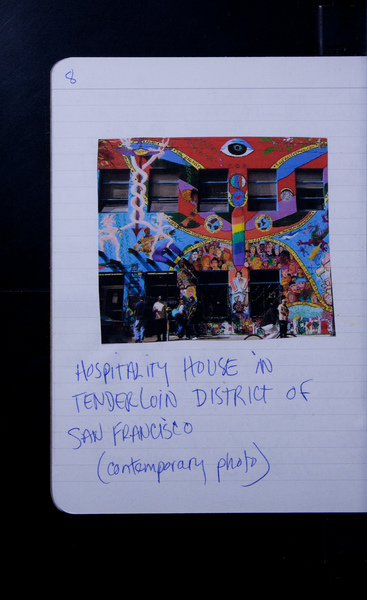 8
HOSPITALITY HOUSE IN
TENDERLOIN DISTRICT OF
SAN FRANCISCO
(contemporary photo)